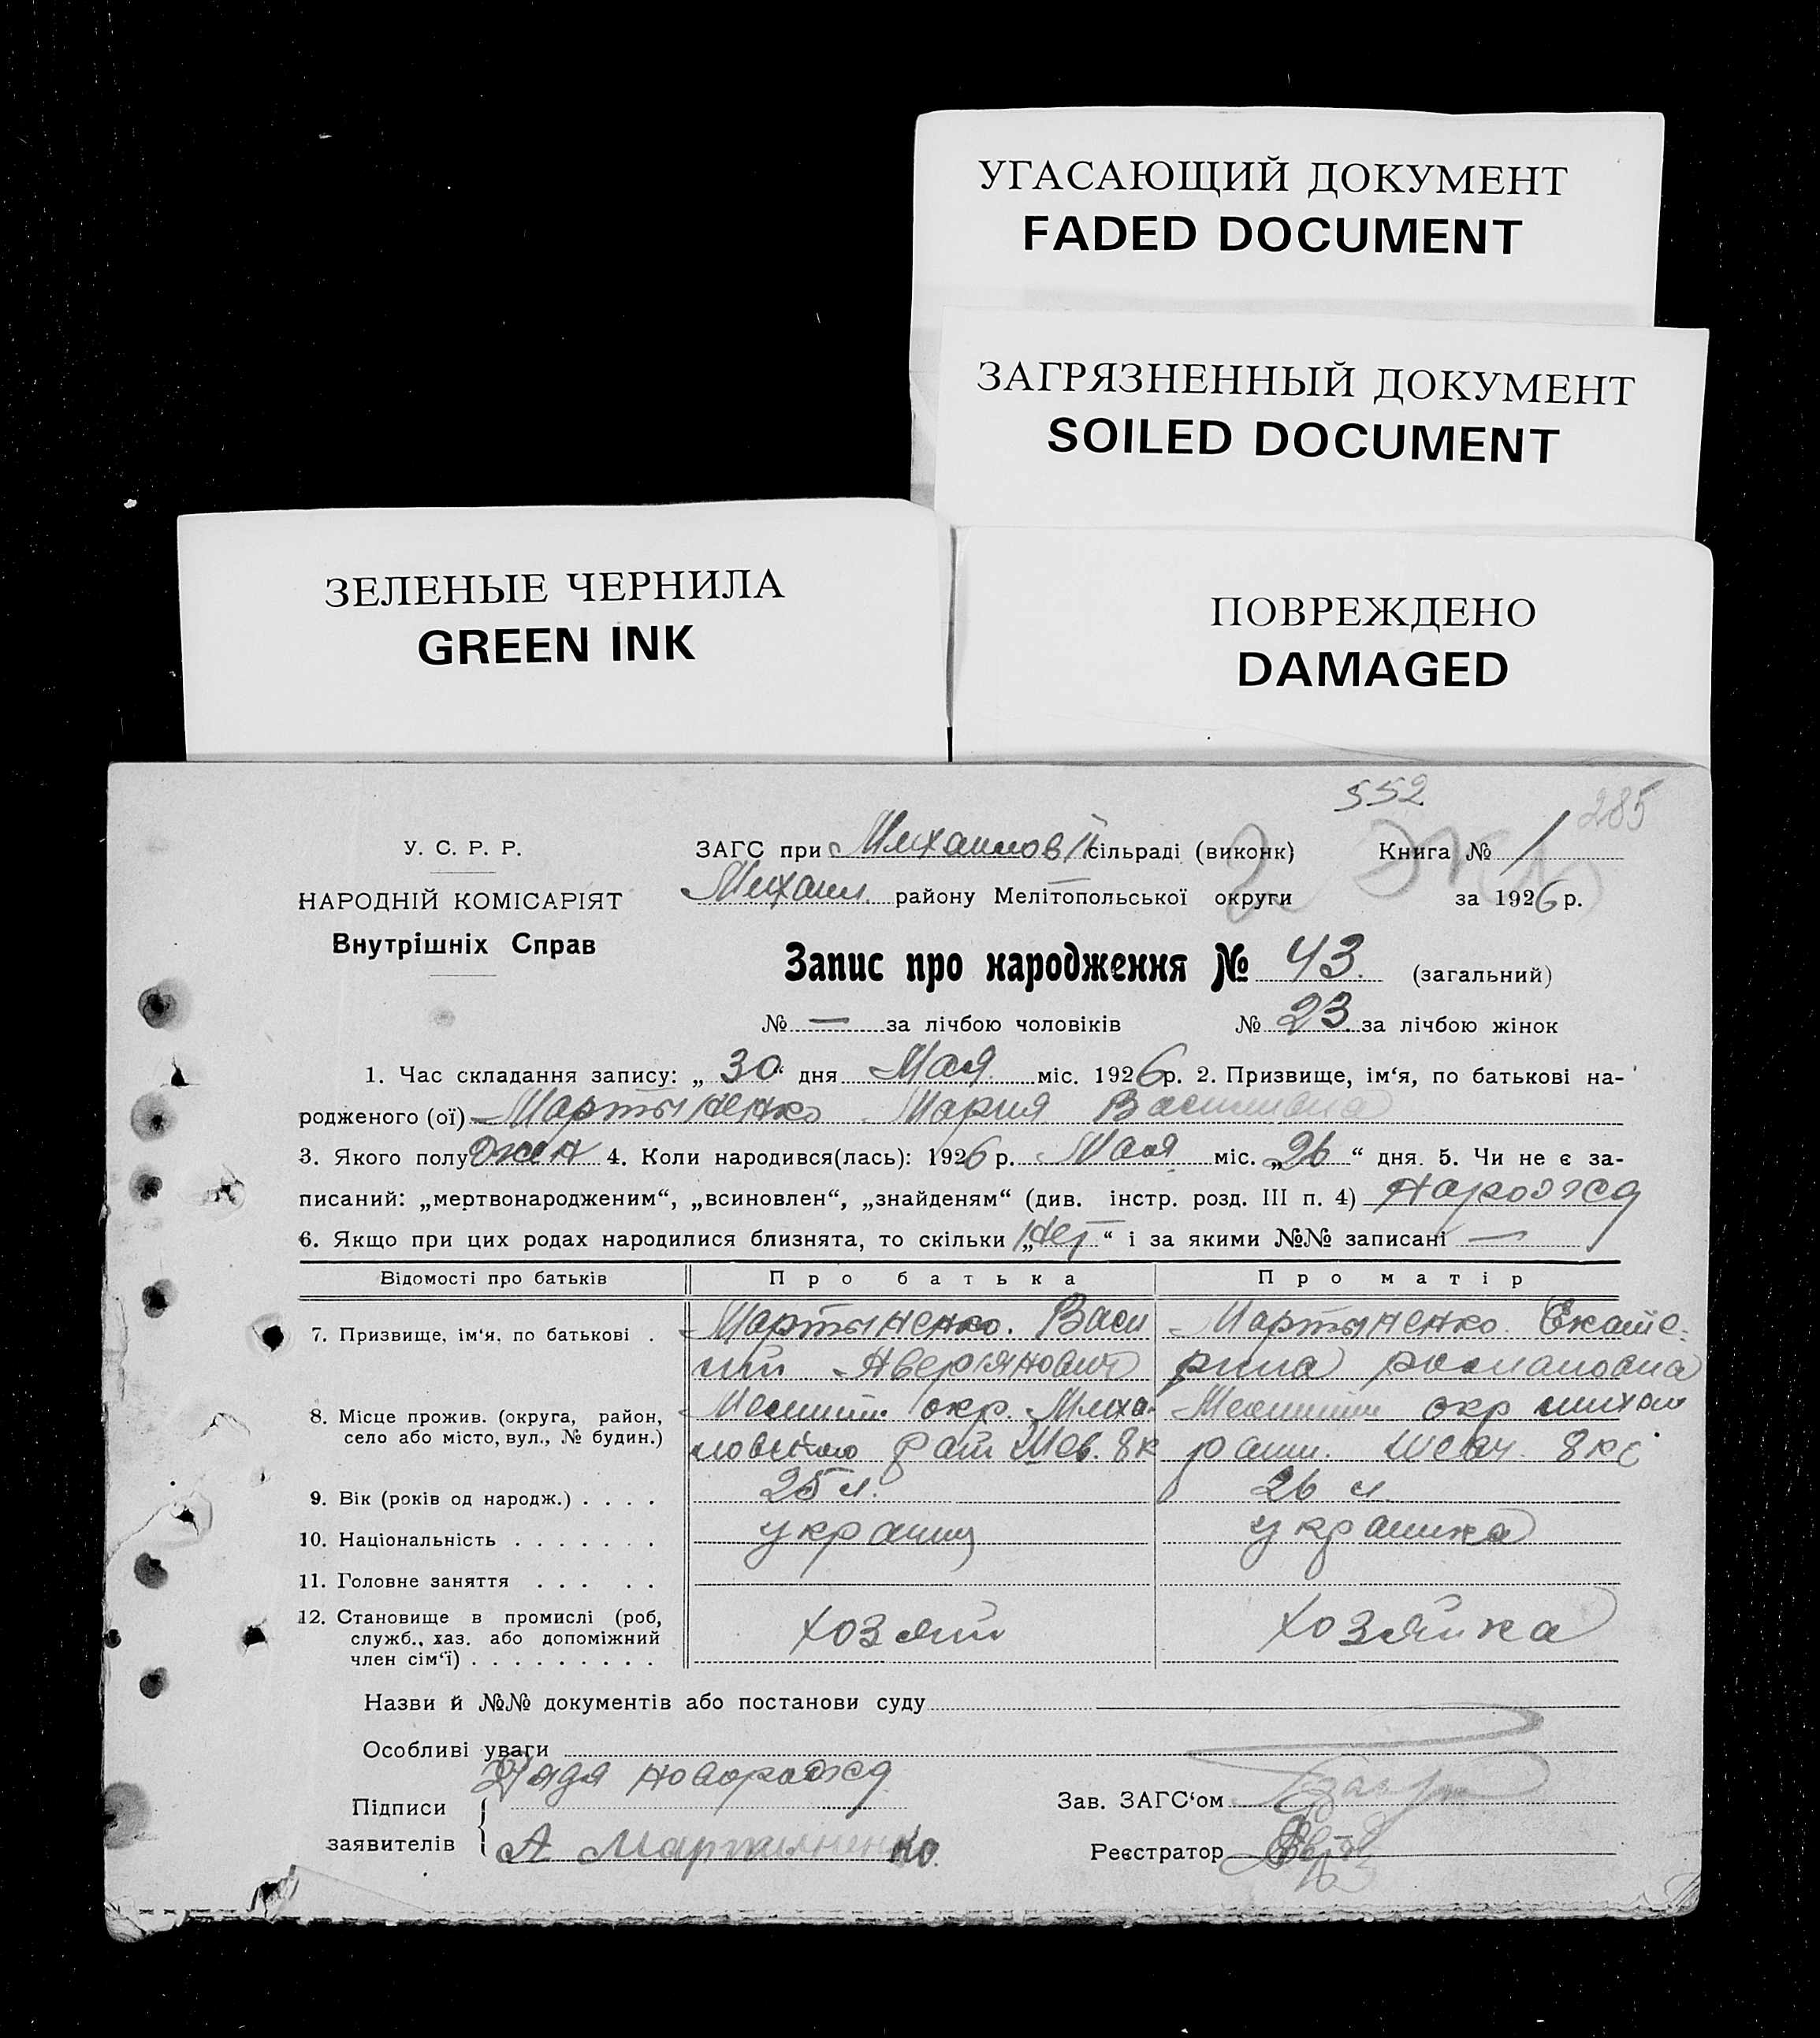 УГАСАЮЩИЙ ДОКУМЕНТ
FADED DOCUMENT
ЗАГРЯЗНЕННЫЙ ДОКУМЕНТ
SOILED DOCUMENT
ЗЕЛЕНЫЕ ЧЕРНИЛА
GREEN INK
ПОВРЕЖДЕНО
DAMAGED
552
285
У. С. Р. Р.
НАРОДНІЙ КОМІСАРІЯТ
Внутрішніх Справ
ЗАГС при Михайловій сільраді (виконк) Книга № 1
Михайл. району Мелітопольської округи за 1926 р.
Запис про народження № 43. (загальний)
№ — за лічбою чоловіків № 23 за лічбою жінок
1. Час складання запису: „ 30 “ дня Мая міс. 1926 р. 2. Призвище, ім‘я, по батькові на-
родженого (ої) Мартыненко Мария Васильевна
3. Якого полу жен 4. Коли народився(лась): 1926 р. Мая міс. „26“ дня. 5. Чи не є за-
писаний: „мертвонародженим“, „всиновлен“, „знайденям“ (див. інстр. розд. III п. 4)
6. Якщо при цих родах народилися близнята, то скільки „нет“ і за якими №№ записані —
Відомості про батьків Про батька Про матір
7. Призвище, ім‘я, по батькові . Мартыненко. Васи Мартыненко Екате-
лий Аверянович рина романовна
8. Місце прожив. (округа, район, окр. Миха окр михай
село або місто, вул., № будин.) рай Шев. 8к 8к
9. Вік (років од народж.) . . . . 25 л. 26 л.
10. Національність . . . . . . . украинц украинка
11. Головне заняття . . . . .
12. Становище в промислі (роб,
служб., хаз. або допоміжний хозяин хозяйка
член сім‘ї) . . . . . . . . .
Назви й №№ документів або постанови суду
Особливі уваги
Дядя новорожд
Підписи
заявителів А Мартыненко.
Зав. ЗАГС‘ом
Реєстратор